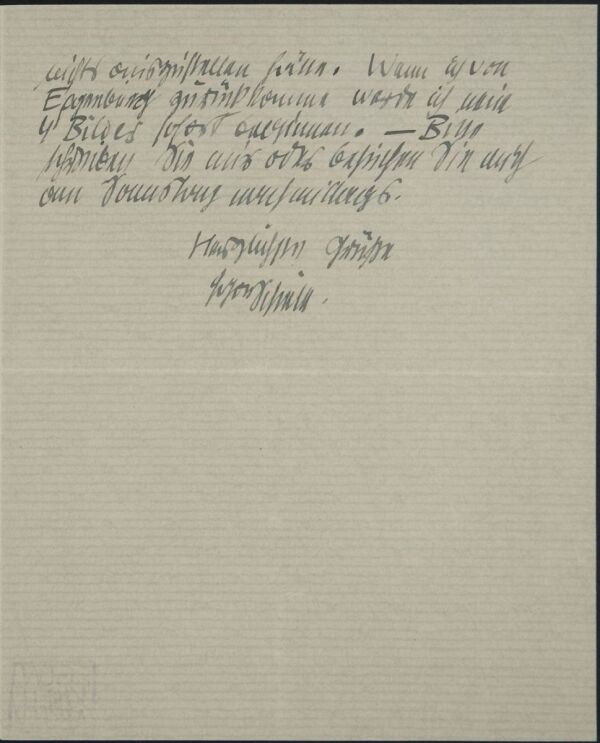 nichts auszustellen hätte. Wenn ich von
Eggenburg zurückkomme werde ich mein
4 Bilder sofort beginnen. — Bitte
schreiben Sie mir oder besuchen Sie mich
am Samstag nachmittags.
Herzlichste Grüße